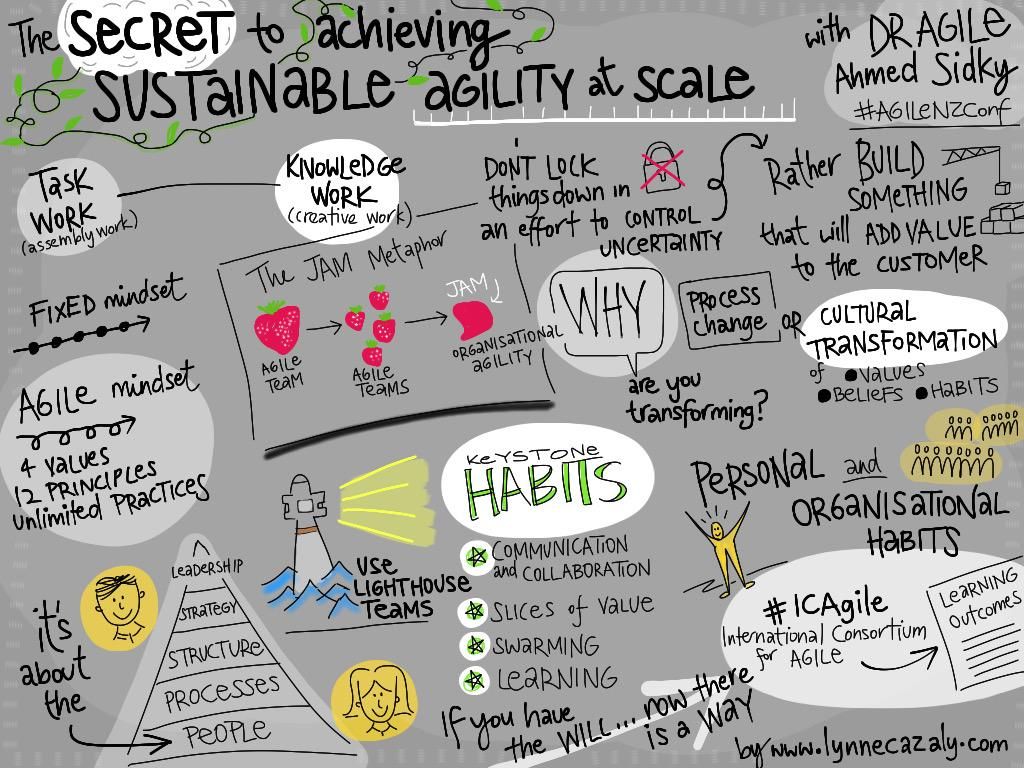 The SECRET to achieving
SUSTAINABLE agility at scale
with DR AGILE
Ahmed Sidky
#AGILENZConf
Task
Work
(assembly work)
Knowledge
Work
(creative work)
Don't lock
things down in
an effort to control
uncertainty
Rather BUILD
SOMETHING
that will ADD VALUE
to the CUSTOMER
FIXED mindset
The JAM Metaphor
AGILE
TEAM
AGILE
TEAMS
JAM
ORGANISATIONAL
AGILITY
WHY
are you
transforming?
PROCESS
change
OR
CULTURAL
TRANSFORMATION
of • VALUES
• BELIEFS • HABITS
AGILE mindset
4 VALUES
12 PRINCIPLES
unlimited PRACTICES
USE
LIGHTHOUSE
TEAMS
KEYSTONE
HABITS
COMMUNICATION
and COLLABORATION
SLICES of VALUE
SWARMING
LEARNING
PERSONAL and
ORGANISATIONAL
HABITS
it's
about
the
LEADERSHIP
STRATEGY
STRUCTURE
PROCESSES
PEOPLE
#ICAgile
International Consortium
for AGILE
LEARNING
OUTCOMES
If you have
the WILL... now there
is a WAY
by www.lynnecazaly.com